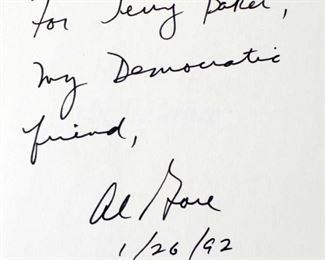 For Jerry Baker,
my Democratic
friend,
Al Gore
1/26/92